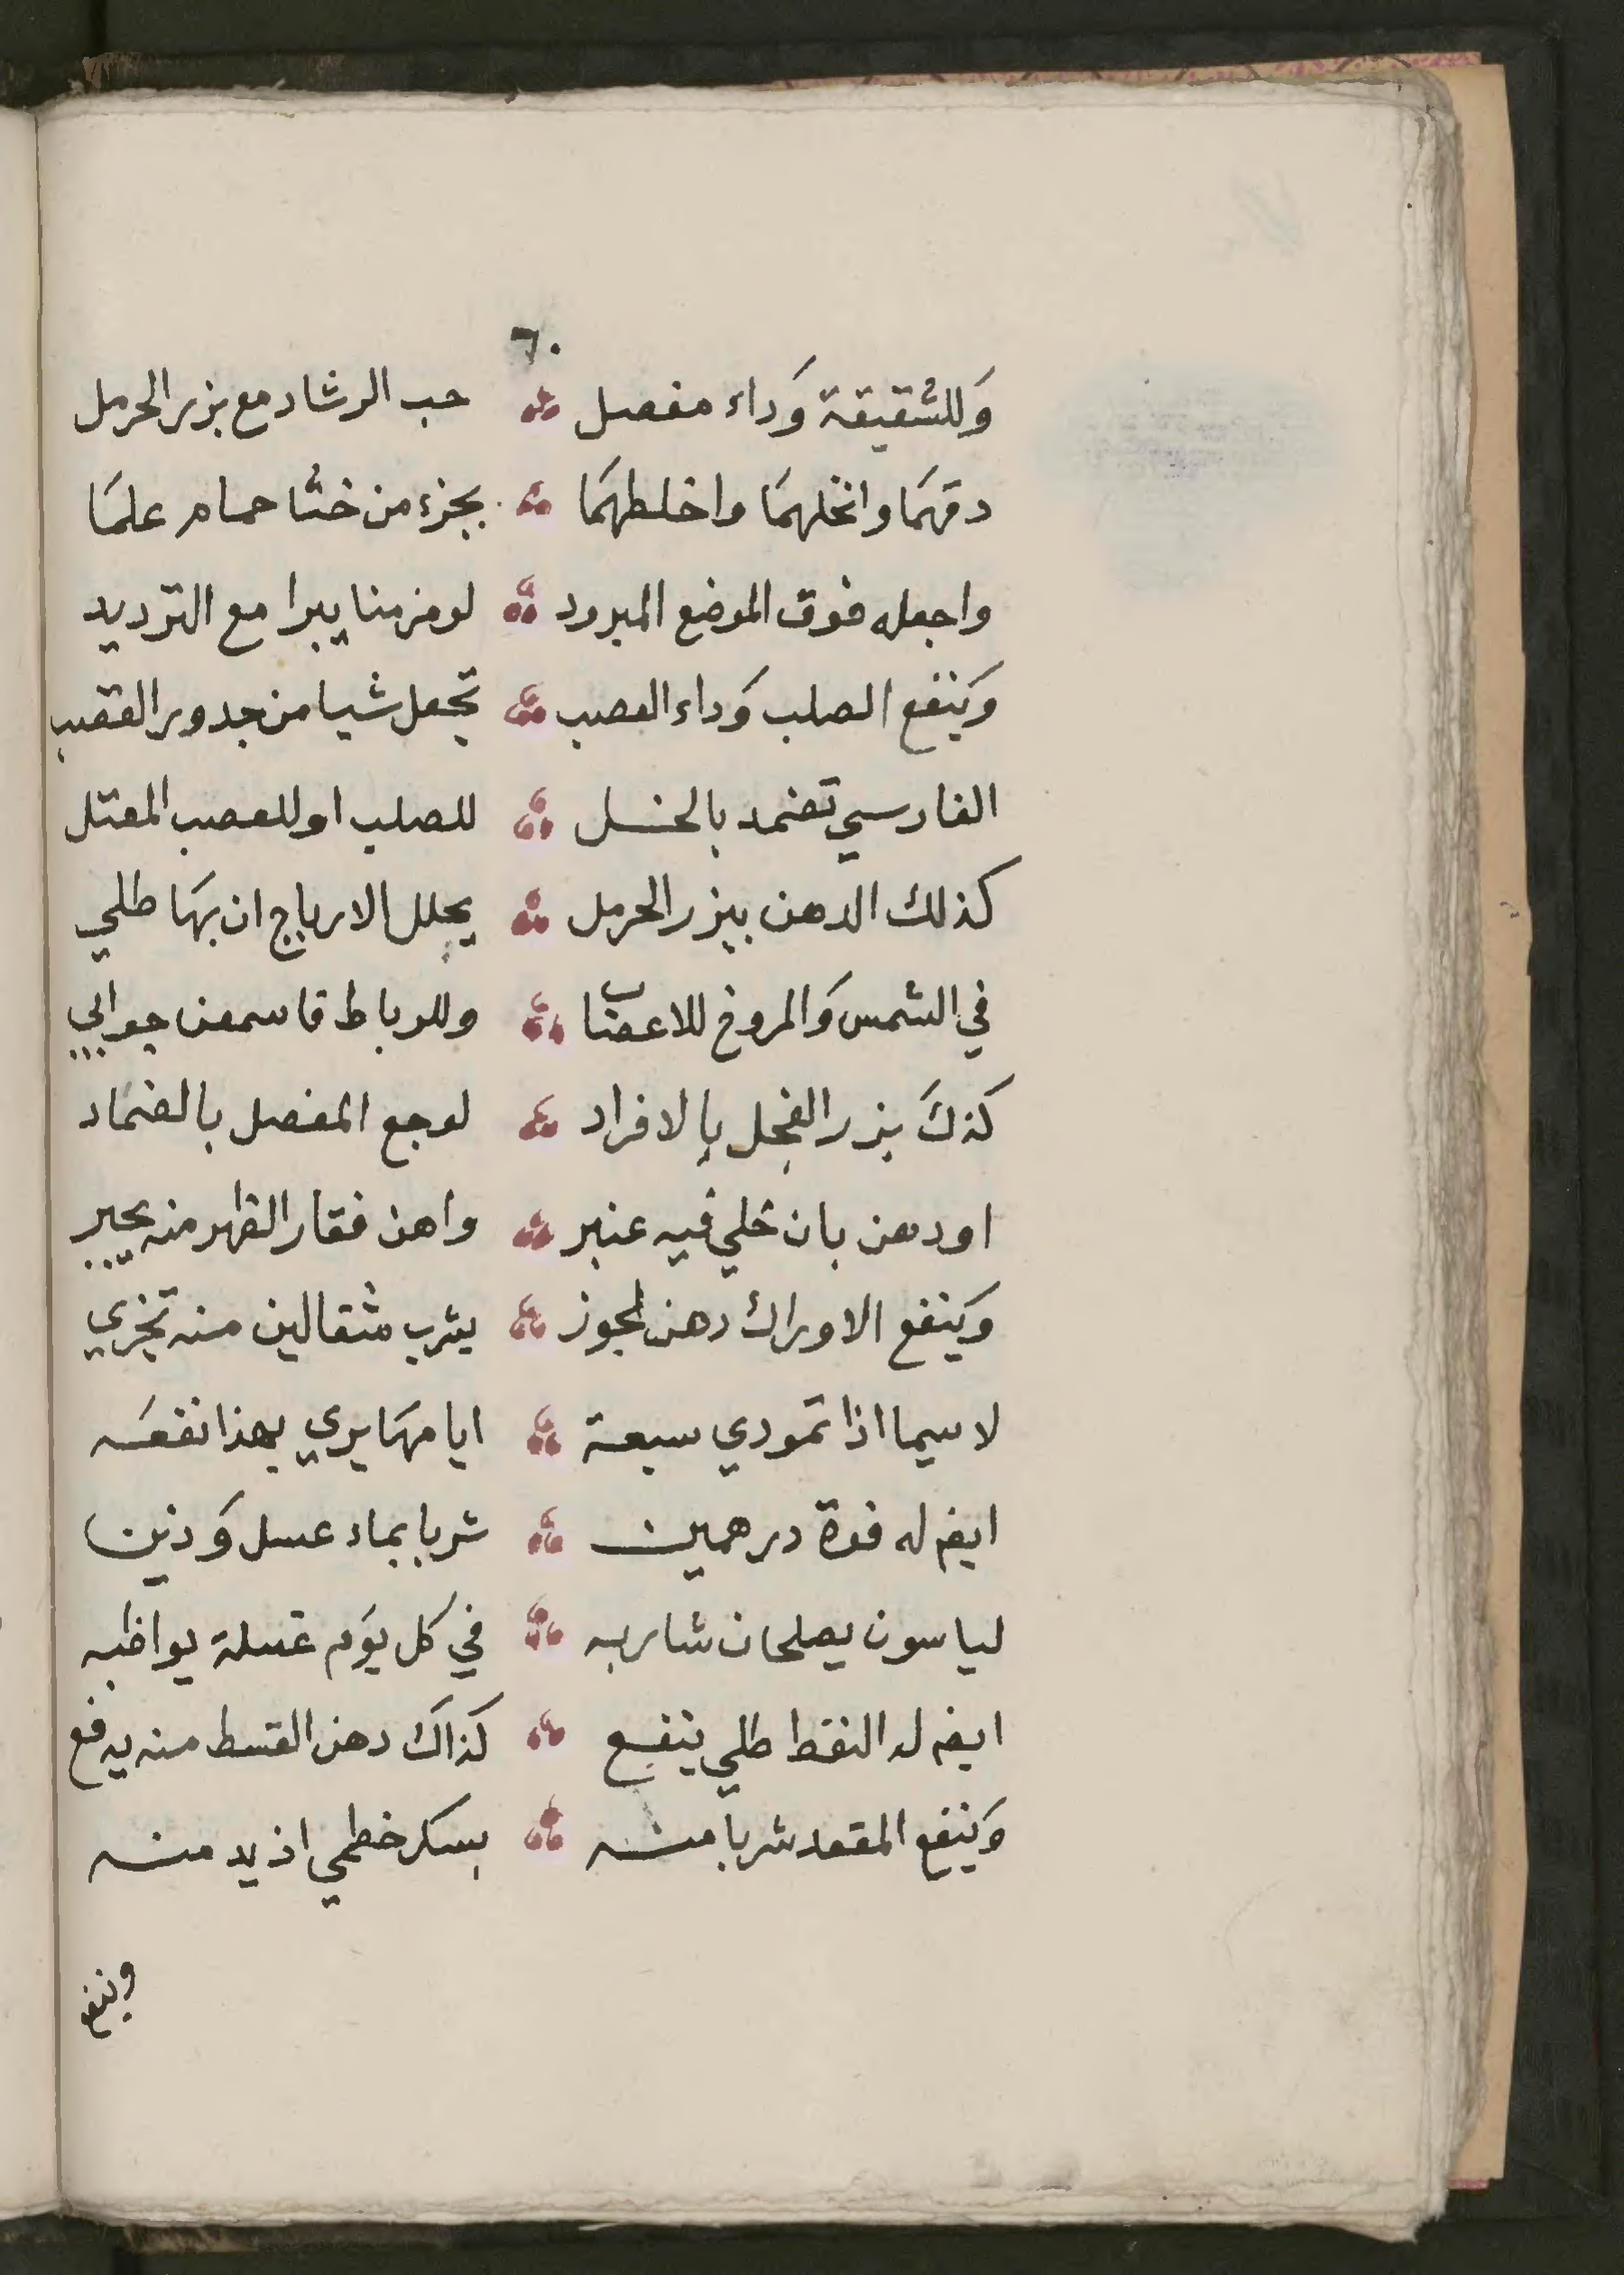 ٦٠
وَللشقيقة وَداء مفصل حب الرشاد مع بزر الحرمل
دقهمَا وانخلهمَا واخلطهمَا بجزء من خثا حمام علمَا
واجعله فوق الموضع المبرود لو مزمنا يبرا مع الترديد
وَينفع الصلب وَداء العصب تجعل شيا من جدور القصب
الفارسي تضمد بالخل للصلب او للعصب المعتل
كذلك الدهن ببزر الحرمل يحلل الارياح ان بهَا طلي
في الشمس وَالمروخ للاعصاب وللرباط فاسمعن جوابي
كذكَ بزر الفجل بالافراد لوجع المفصل بالضماد
او دهن بان خلي فيه عنبر واهن فقار الظهر منه يجبر
وَينفع الاوراك دهن لجوز يشرب مثقالين منه تجزي
لاسيما اذا تمودي سبعة ايامهَا يري بهذا نفعَه
ايض له فوة درهمين شربا بماء عسل وَذين
لياسون يصلحان شاربه في كل يوَم غسلة يواظبه
ايض له النفط طلي ينفع كذاكَ دهن القسط منه يدفع
وَينفع المقعد شربا منه بسكر خطمي اذيد منه
وينفع